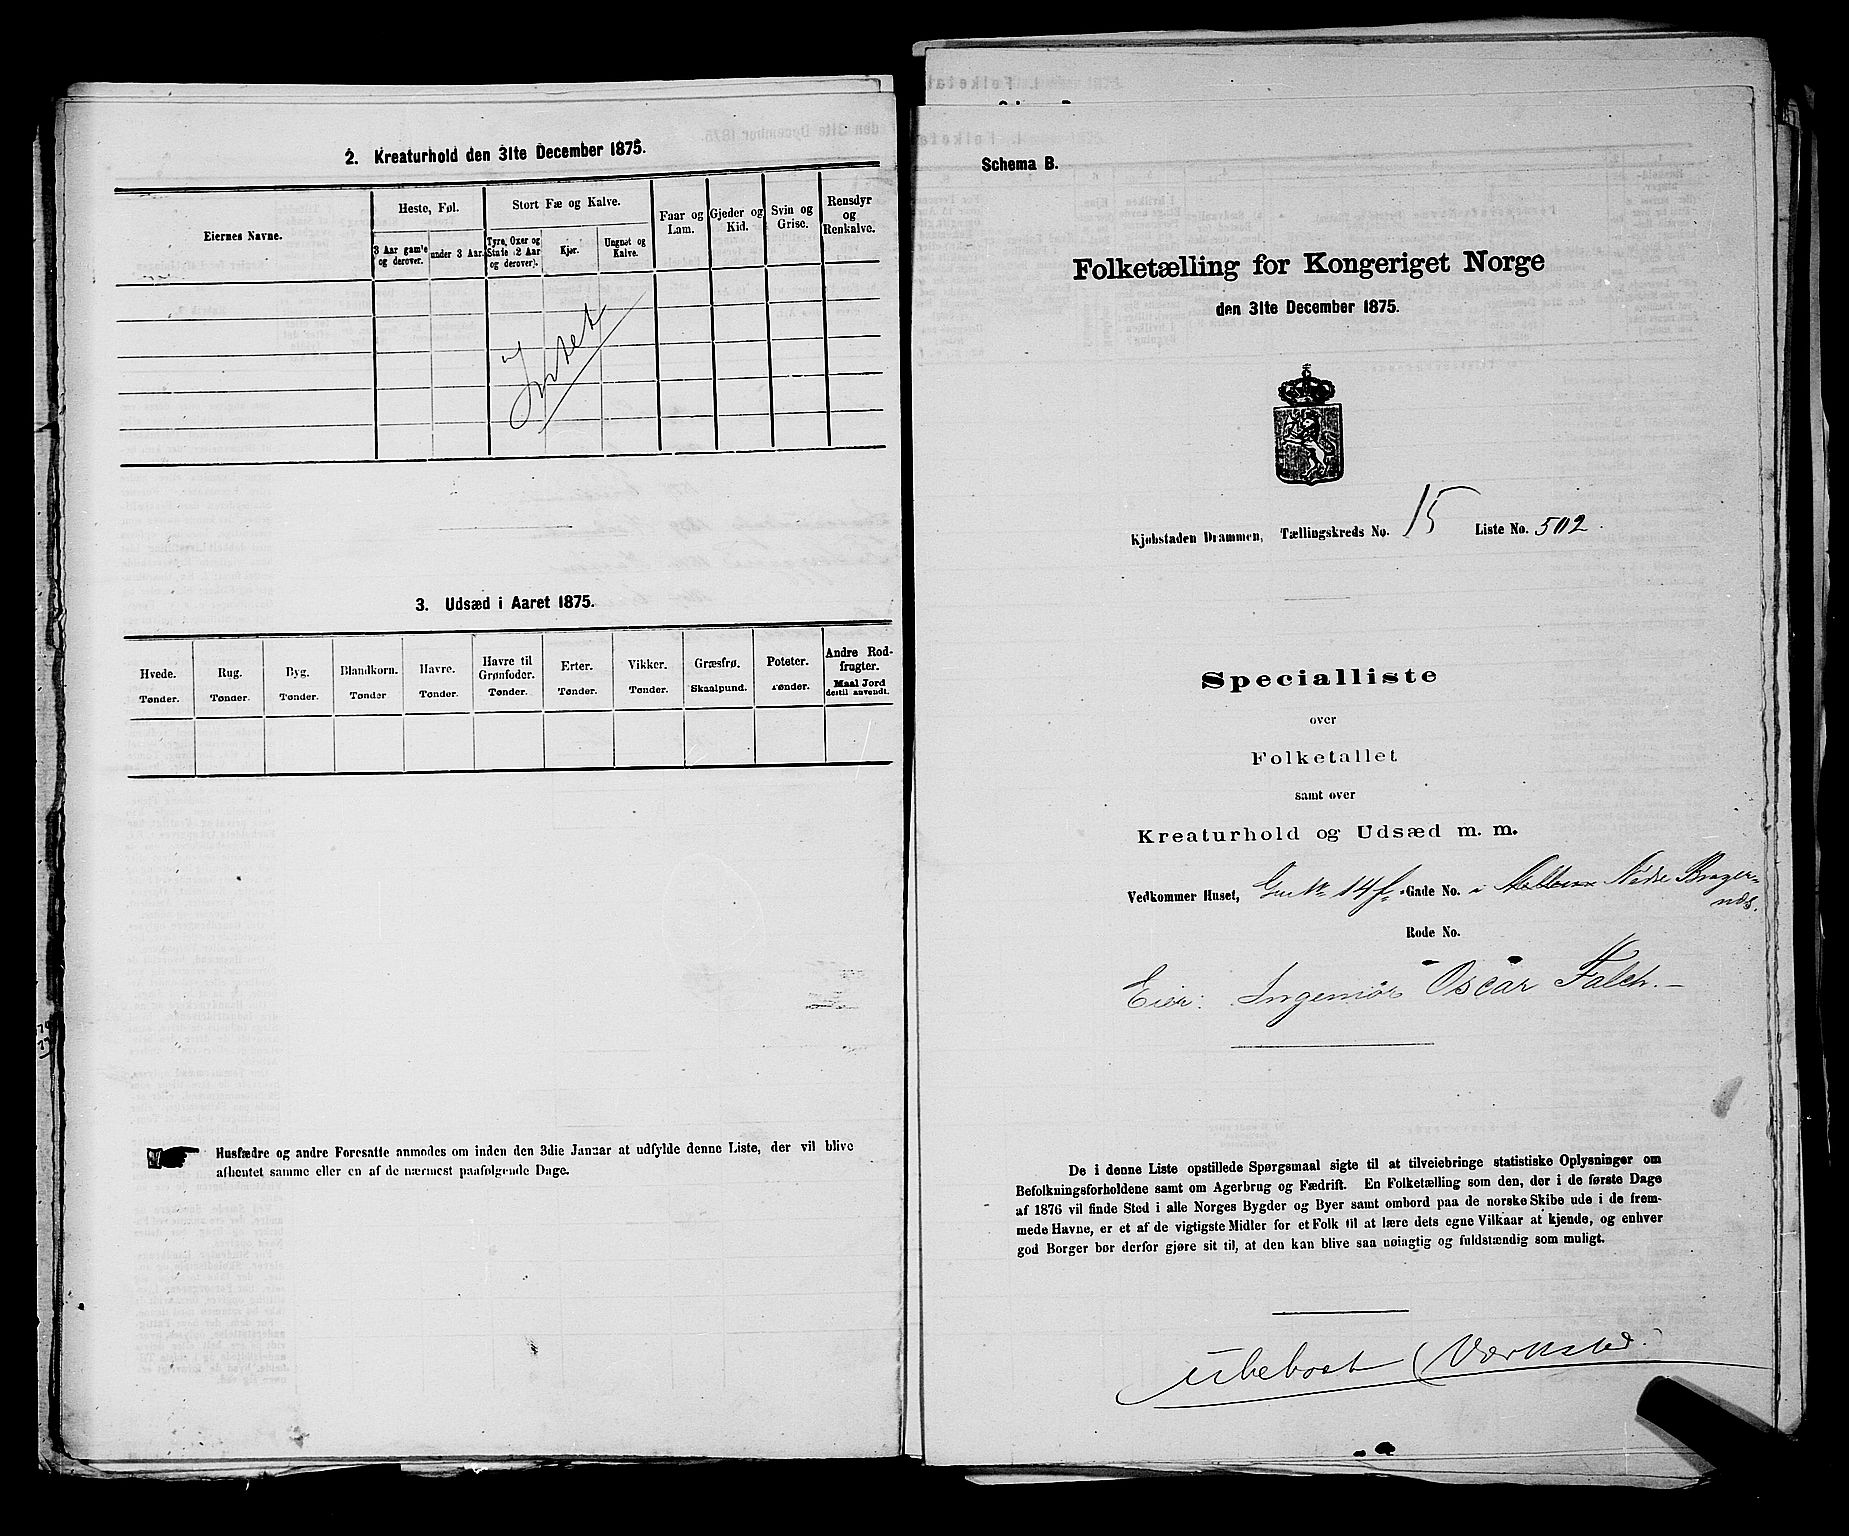 2. Kreaturhold den 31te December 1875.
Eiernes Navne.
Heste, Føl.
3 Aar gamle og derover.
under 3 Aar.
Stort Fæ og Kalve.
Tyre, Oxer og Stude (2 Aar og derover).
Kjør.
Ungnøt og Kalve.
Faar og Lam.
Gjeder og Kid.
Svin og Grise.
Rensdyr og Renkalve.
Intet
3. Udsæd i Aaret 1875.
Hvede. Tønder.
Rug. Tønder.
Byg. Tønder.
Blandkorn. Tønder
Havre. Tønder.
Havre til Grønfoder. Tønder.
Erter. Tønder.
Vikker. Tønder.
Græsfrø. Skaalpund.
Poteter. Tønder.
Andre Rodfrugter. Maal Jord dertil anvendt.
Husfædre og andre Foresatte anmodes om inden den 3die Januar at udfylde denne Liste, der vil blive
afhentet samme eller en af de nærmest paafølgende Dage.
Schema B.
Folketælling for Kongeriget Norge
den 31te December 1875.
Kjøbstaden Drammen, Tællingskreds No. 15 Liste No. 502.
Specialliste
over
Folketallet
samt over
Kreaturhold og Udsæd m. m.
Vedkommer Huset, 14 f Gade No. i Nedre Brager-
næs.
Rode No.
Eier: Ingeniør Oscar Falch.
De i denne Liste opstillede Spørgsmaal sigte til at tilveiebringe statistiske Oplysninger om
Befolkningsforholdene samt om Agerbrug og Fædrift. En Folketælling som den, der i de første Dage
af 1876 vil finde Sted i alle Norges Bygder og Byer samt ombord paa de norske Skibe ude i de frem-
mede Havne, er et af de vigtigste Midler for et Folk til at lære dets egne Vilkaar at kjende, og enhver
god Borger bør derfor gjøre sit til, at den kan blive saa nøiagtig og fuldstændig som muligt.
ubeboet (Værksted.